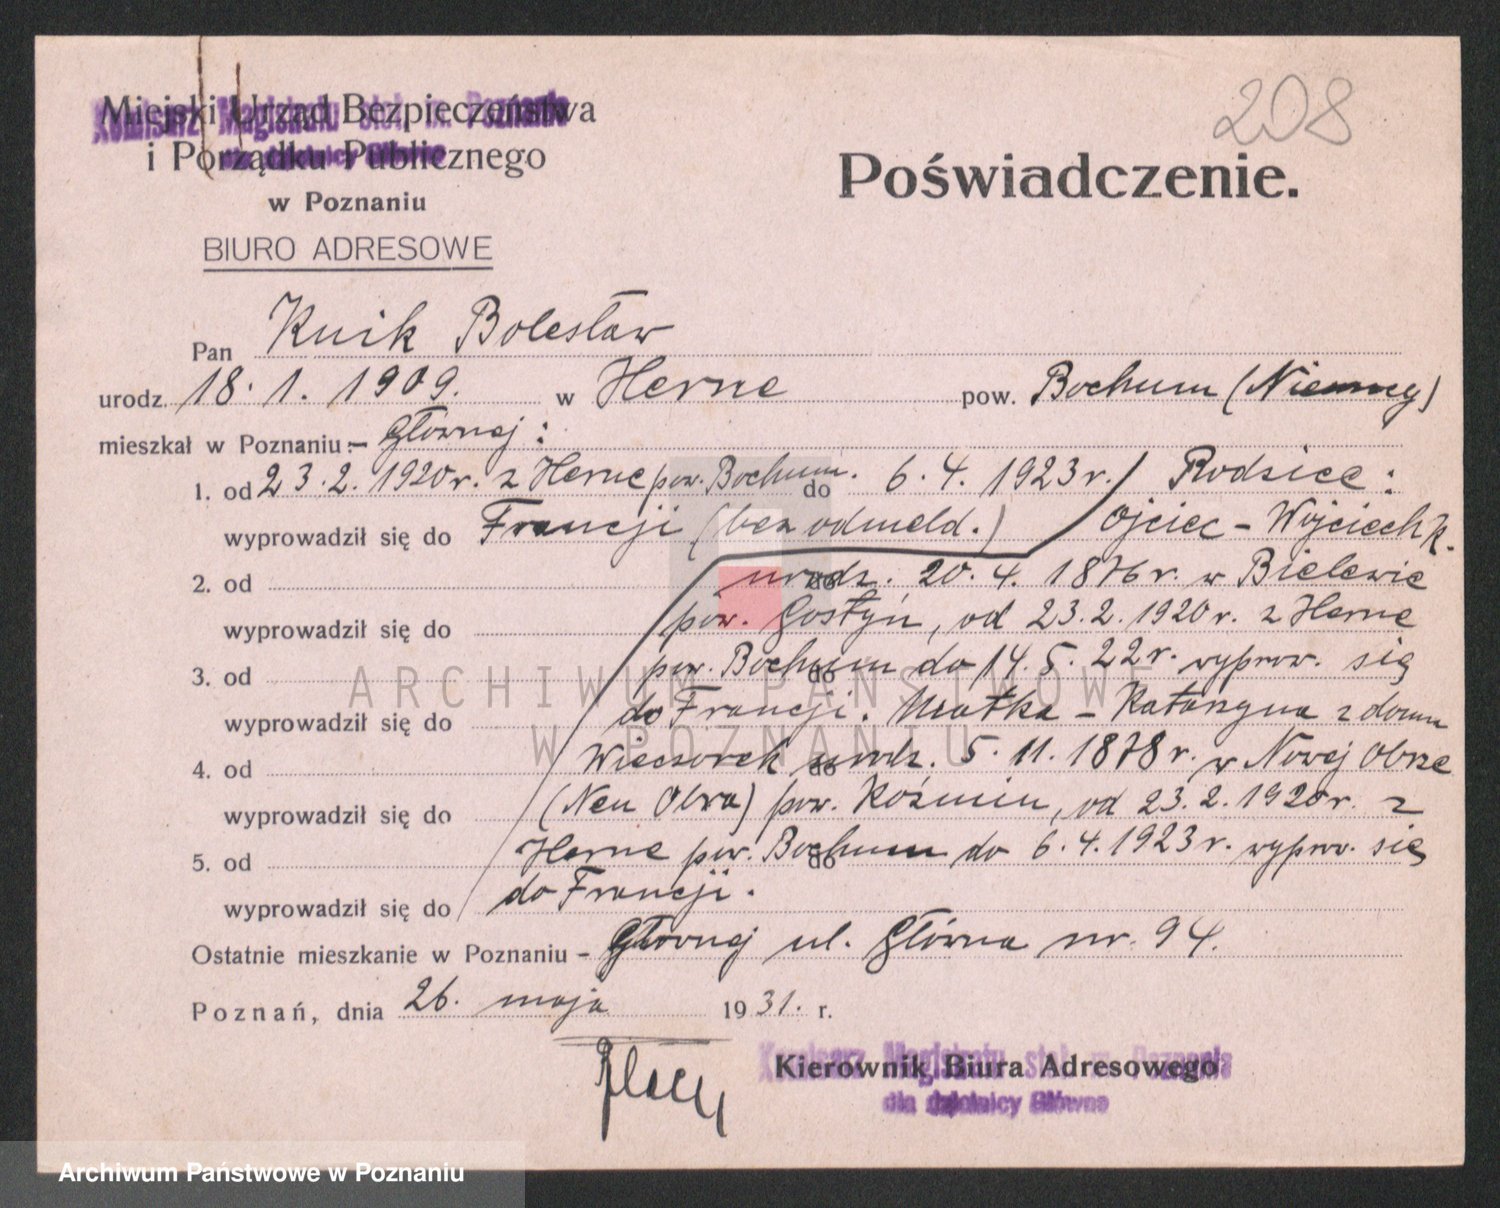 208
Miejski Urząd Bezpieczeństwa
Komisarz Magistratu stoł. m. Poznania
i Porządku Publicznego
dla dzielnicy Główne
w Poznaniu
BIURO ADRESOWE
Poświadczenie.
Pan Kuik Bolesław
urodz. 18. 1. 1909. w Herne pow. Bochum (Niemcy)
mieszkał w Poznaniu:- Głównej:
1. od 23.2.1920r. z Herne pow. Bochum. do 6.4.1923r. Rodzice:
wyprowadził się do Francji (bez odmeld.) ojciec - Wojciech K.
2. od do urodz. 20.4.1876r. w Bielewie
wyprowadził się do pow. Gostyń, od 23.2.1920r. z Herne
3. od pow. Bochum do do 14.5.22r. wyprow. się
wyprowadził się do do Francji. Matka - Katarzyna z domu
4. od Wieczorek do urodz. 5.11.1878r. w Nowej Obrze
wyprowadził się do (Neu Obra) pow. Koźmin, od 23.2.1920r. z
5. od Herne pow. Bochum do do 6.4.1923r. wyprow. się
wyprowadził się do do Francji.
Ostatnie mieszkanie w Poznaniu - Głównej ul. Główna nr. 94.
Poznań, dnia 26. maja 1931. r.
Komisarz Magistratu stoł. m. Poznania
Kierownik Biura Adresowego
dla dzielnicy Główne
ARCHIWUM PAŃSTWOWE
W POZNANIU
Archiwum Państwowe w Poznaniu